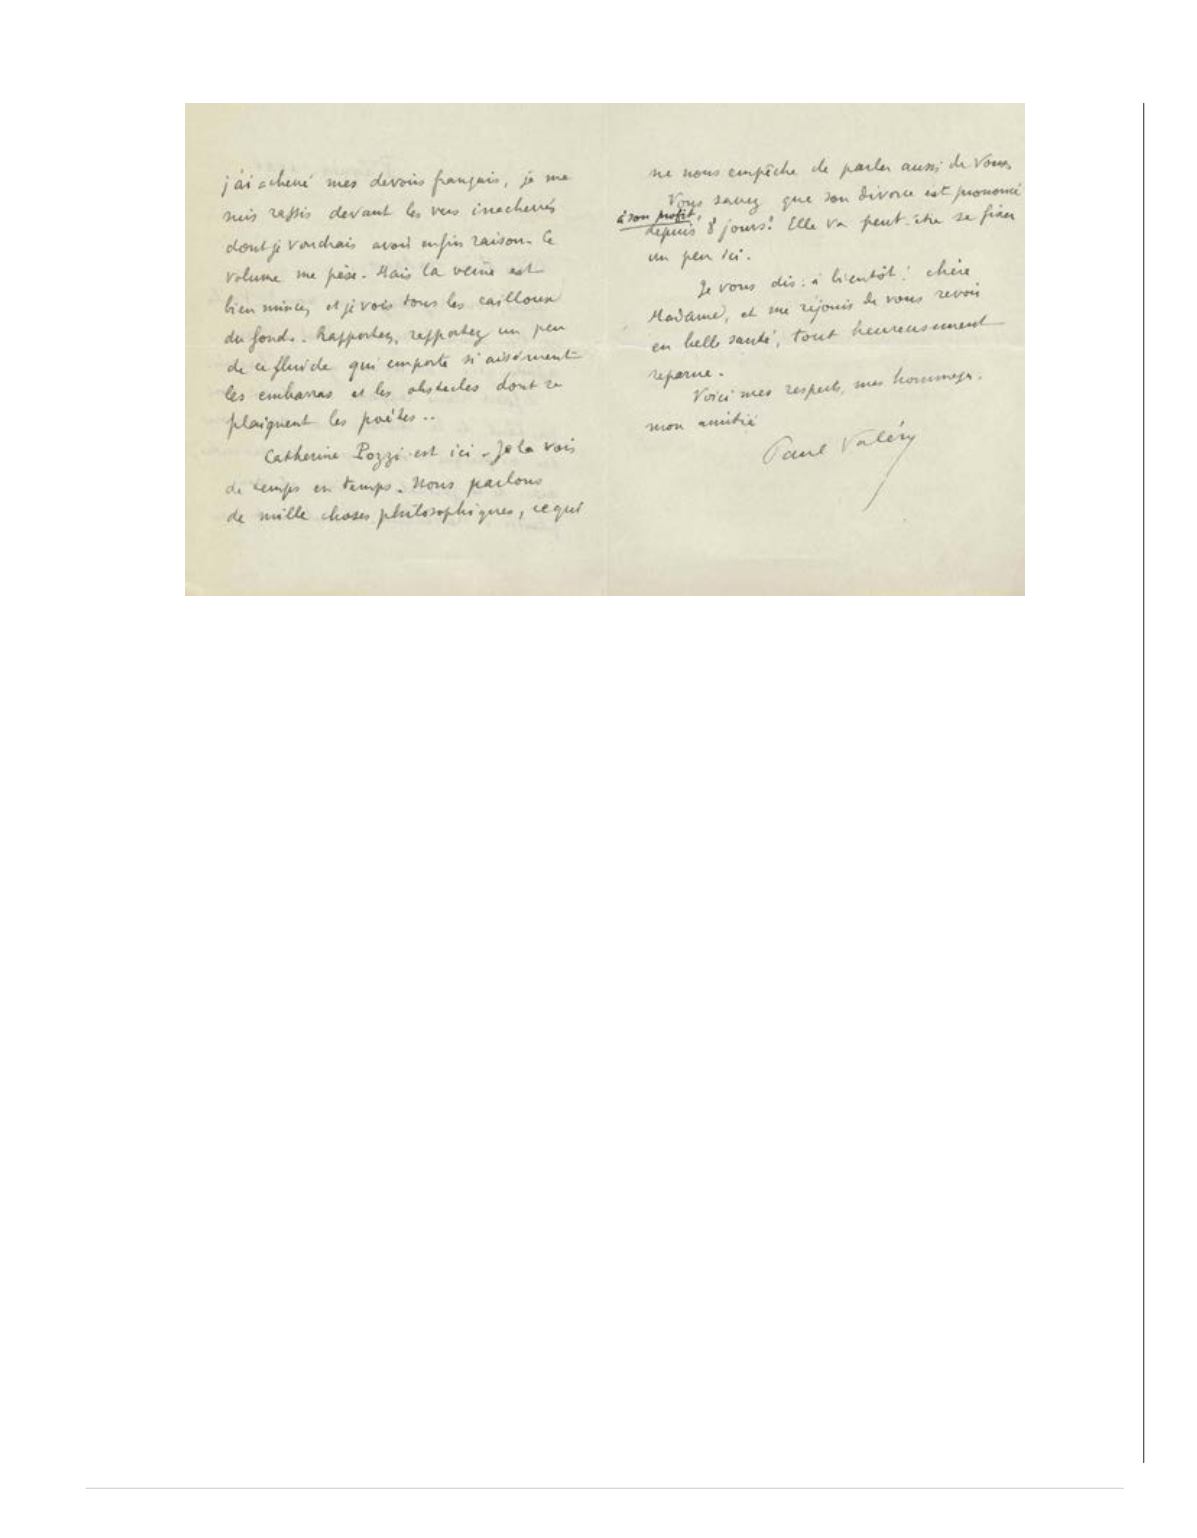 j'ai achevé mes devoirs français, je me
suis rassis devant les vers inachevés
dont je voudrais avoir enfin raison. Ce
volume me pèse. Mais la veine est
bien mince, et je vois tous les cailloux
du fond. Rapportez, rapportez un peu
de ce fluide qui emporte si aisément
les embarras et les obstacles dont se
plaignent les poètes..
Catherine Pozzi est ici. Je la vois
de temps en temps. Nous parlons
de mille choses philosophiques, ce qui
ne nous empêche de parler aussi de Vous
Vous savez que son divorce est prononcé
à son profit,
depuis 8 jours! Elle va peut-être se fixer
un peu ici.
Je vous dis: à bientôt! chère
Madame, et me réjouis de vous revoir
en belle santé, tout heureusement
reparue.
Voici mes respects, mes hommages,
mon amitié
Paul Valéry